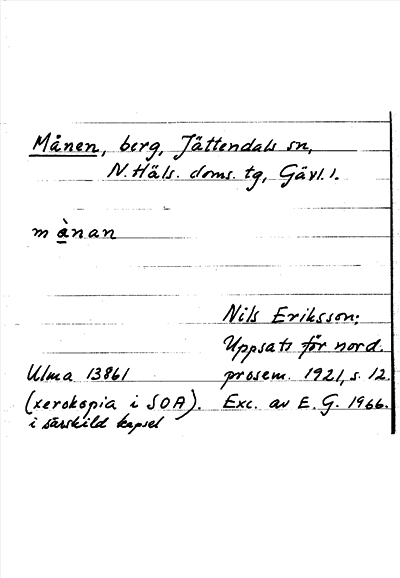 Månen, berg, Jättendals sn,
N. Häls. doms. tg, Gävl. l.
m ànan
Nils Eriksson:
Uppsats för nord.
Ulma 13861 prosem. 1921, s. 12.
(xerokopia i SOA). Exc. av E. G. 1966.
i särskild kapsel